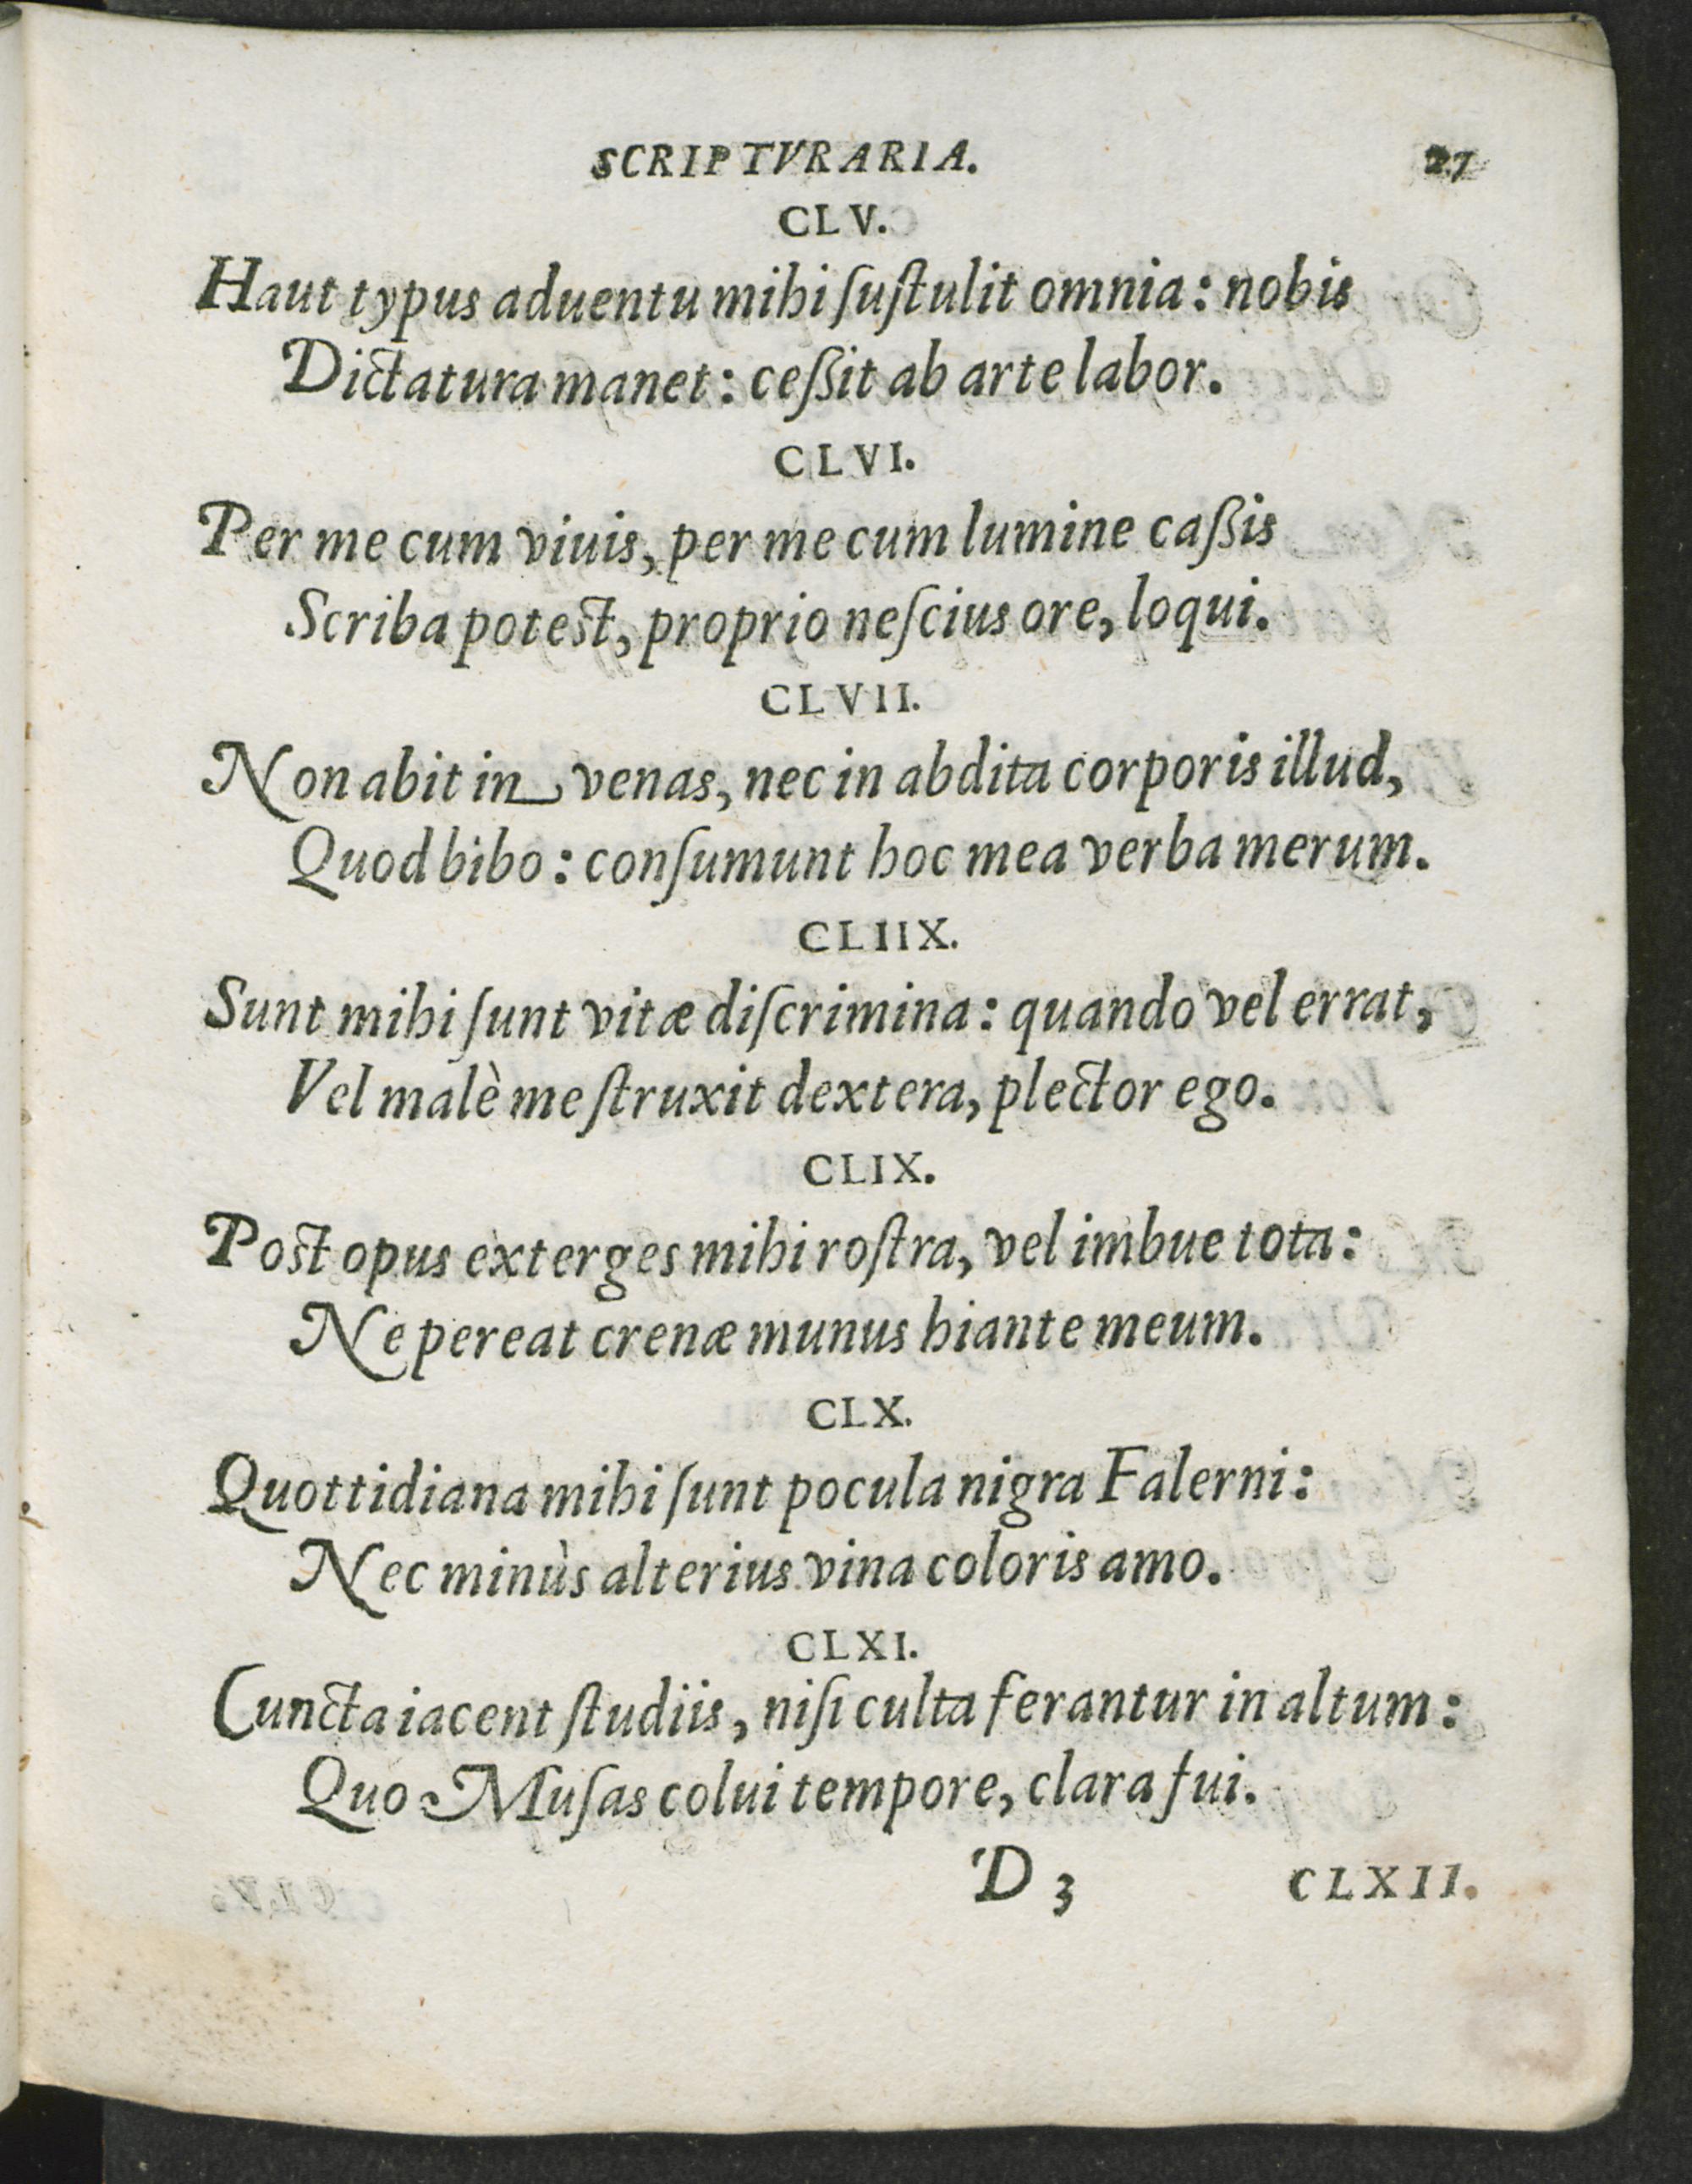 SCRIPTVRARIA. 27
CLV.
Haut typus aduentu mihi ſuſtulit omnia: nobis
Dictatura manet: ceßit ab arte labor.
CLVI.
Per me cum viuis, per me cum lumine caßis
Scriba potest, proprio neſcius ore, loqui.
CLVII.
Non abit in venas, nec in abdita corporis illud,
Quod bibo: conſumunt hoc mea verba merum.
CLIIX.
Sunt mihi ſunt vitæ diſcrimina: quando vel errat,
Vel malè me ſtruxit dextera, plector ego.
CLIX.
Post opus exterges mihi roſtra, vel imbue tota:
Ne pereat crenæ munus hiante meum.
CLX.
Quottidiana mihi ſunt pocula nigra Falerni:
Nec minùs alterius vina coloris amo.
CLXI.
Cuncta iacent ſtudiis, niſi culta ferantur in altum:
Quo Muſas colui tempore, clara fui.
D 3 CLXII.